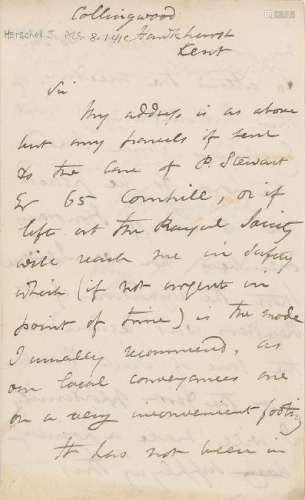 Collingwood
Herschel J. Hawkhurst
Kent
Sir
My address is as above
but any parcels if sent
to the care of P. Stewart
Esr 65 Cornhill, or if
left at the Royal Society
will reach me in safety
which (if not urgent in
point of time) is the mode
I usually recommend, as
our local conveyances are
on a very inconvenient footing
It has not been in